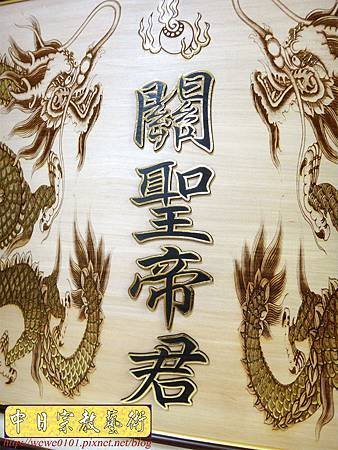 關聖帝君
中日宗教藝術
http://wewe0101.pixnet.net/blog